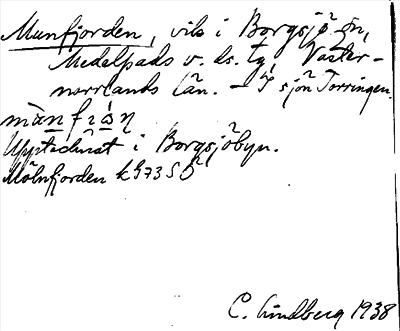 Munfjorden, vik i Borgsjö sn,
Medelpads v. ds. tg, Väster-
norrlands län. – I sjön Torringen.
mànfɪáɳ
Upptecknat i Borgsjöbyn.
Mölnfjorden k G73 SÖ
C. Lindberg 1938